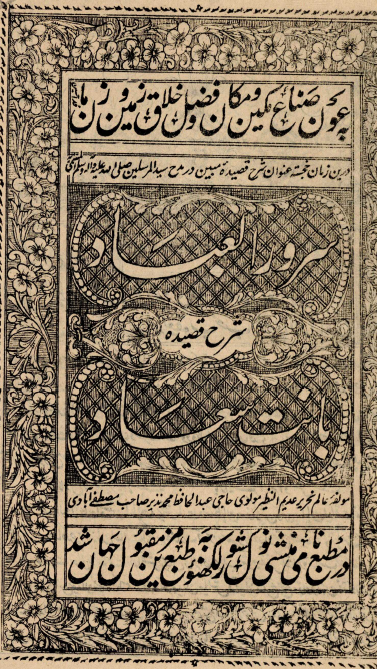 بعون صناع مکین و مکان و فضل خلاق زمین و زمان
درین زمان خجسته عنوان شرح قصیدهٔ مبین در مدح سید المرسلین صلی الله علیه و آله
سرور العباد
شرح قصیده
بانت سعاد
مولفهٔ عالم نحریر عدیم النظیر مولوی حاجی عبد الحافظ محمد نذیر صاحب مصطفےآبادی
در مطبع نامی منشی نولکشور لکهنؤ بطبع مزین مقبول جهان شد